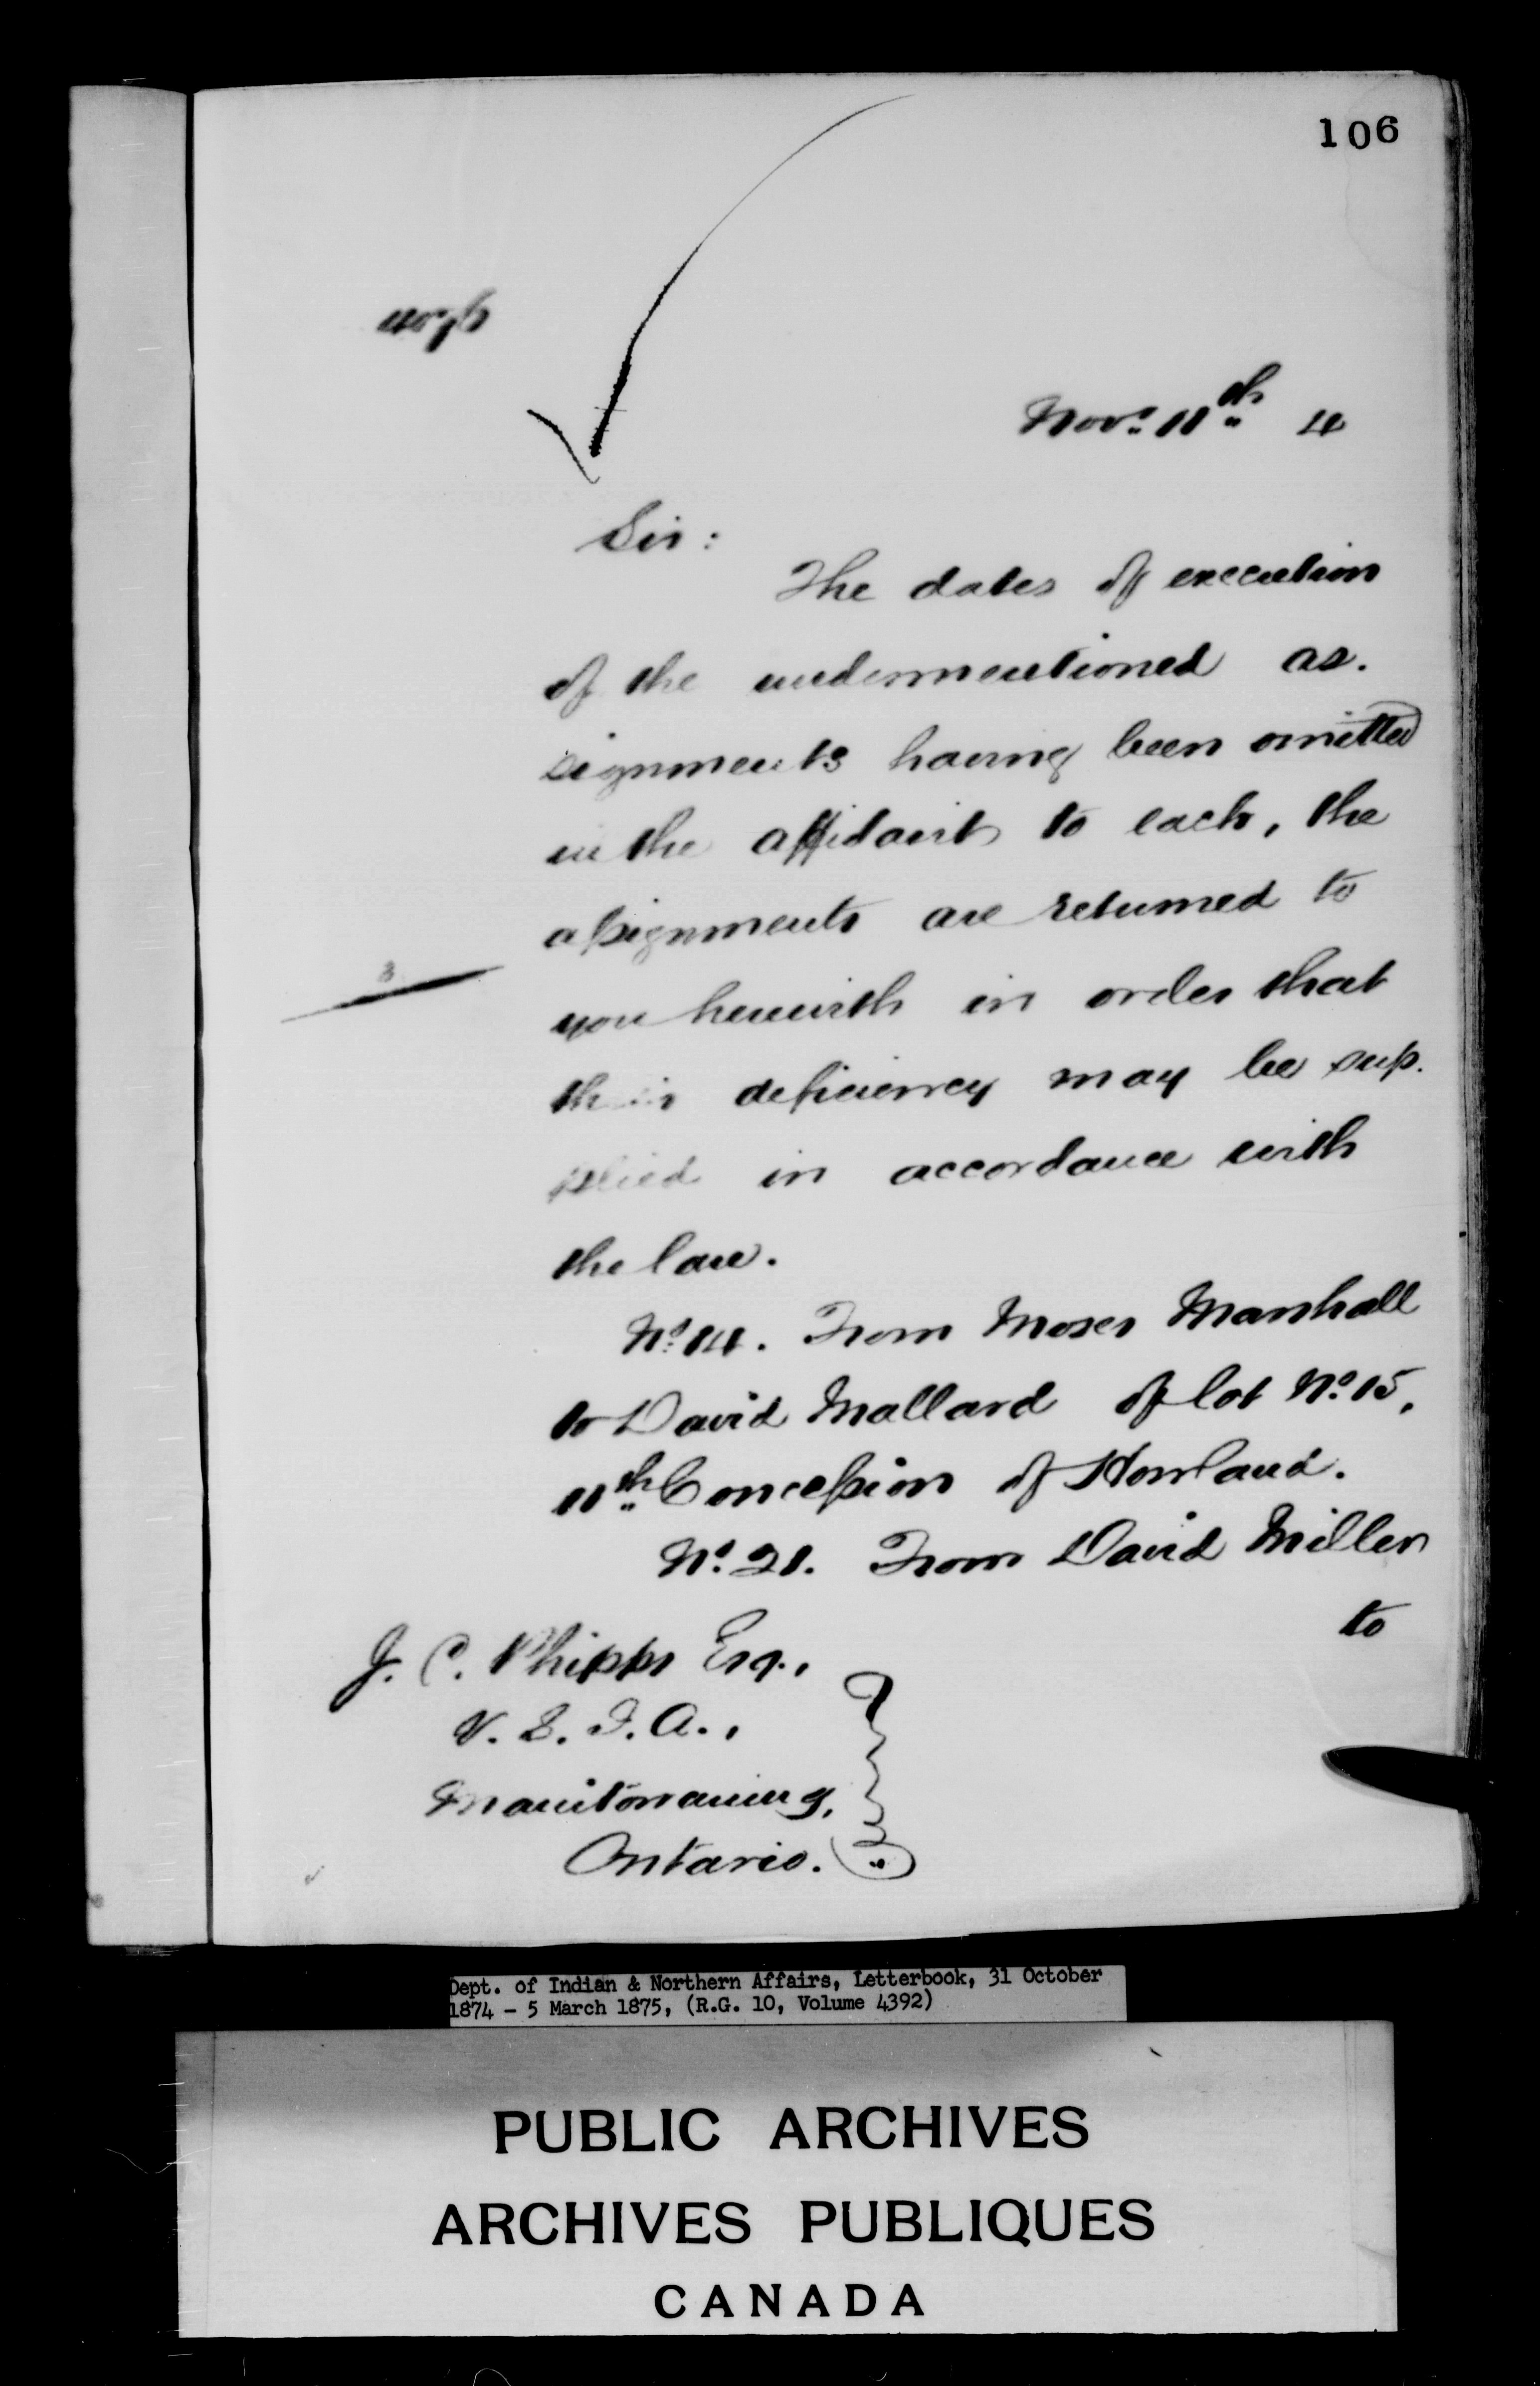 106
Nov. 11th 4
Sir:
The dates of execution
of the undermentioned as-
signments having been omitted
in the affidavit to each, the
assignments are returned to
you herewith in order that
their deficiency may be sup-
plied in accordance with
the law.
No. 14. From Moses Marshall
to David Mallard of lot No. 15,
11th Concession of Howland.
No. 21. From David Miller
to
J. C. Phipps Esq.,
V. S. I. A.,
Manitowaning,
Ontario.
Dept. of Indian & Northern Affairs, Letterbook, 31 October
1874 - 5 March 1875, (R.G. 10, Volume 4392)
PUBLIC ARCHIVES
ARCHIVES PUBLIQUES
CANADA